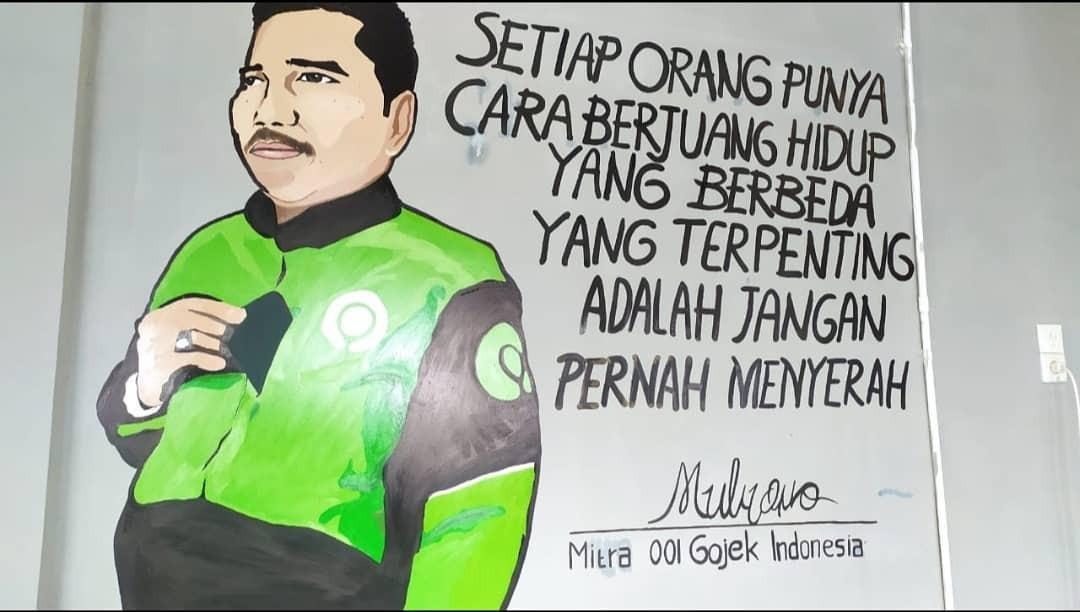 SETIAP ORANG PUNYA
CARA BERJUANG HIDUP
YANG BERBEDA
YANG TERPENTING
ADALAH JANGAN
PERNAH MENYERAH
Mulyono
Mitra 001 Gojek Indonesia